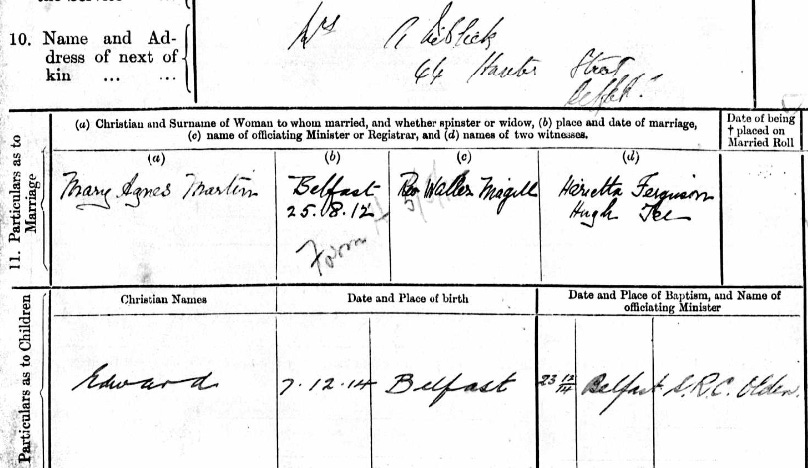 10. Name and Ad-
dress of next of
kin ... ...
Mrs A
64 Street
Belfast
11. Particulars as to
Marriage
(a) Christian and Surname of Woman to whom married, and whether spinster or widow, (b) place and date of marriage,
(c) name of officiating Minister or Registrar, and (d) names of two witnesses.
Date of being
† placed on
Married Roll
(a) (b) (c) (d)
Mary Agnes Martin
Belfast
25.8.12
Rev Walter Magill
Harietta Ferguson
Hugh Tee
Form
Particulars as to Children
Christian Names
Date and Place of birth
Date and Place of Baptism, and Name of
officiating Minister
Edward 7.12.14 Belfast 23 12/14 Belfast S.R.C. Olden.